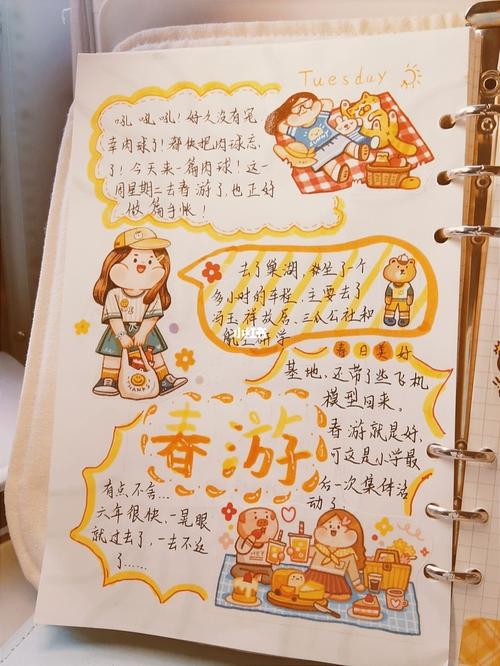 Tuesday
吼吼吼！好久没有冤
幸肉球了！都快把肉球忘
了！今天来一篇肉球！这一
周星期二去春游了，也正好
做篇手账！
去了巢湖，坐了一个
多小时的车程，主要去了
冯玉祥故居、三瓜公社和
航空研学
春日美好
基地，还带了些飞机
模型回来。
春游
春游就是好，
可这是小学最
后一次集体活
动了
有点不舍...
六年很快，一晃眼
就过去了，一去不返
了......
THANKS